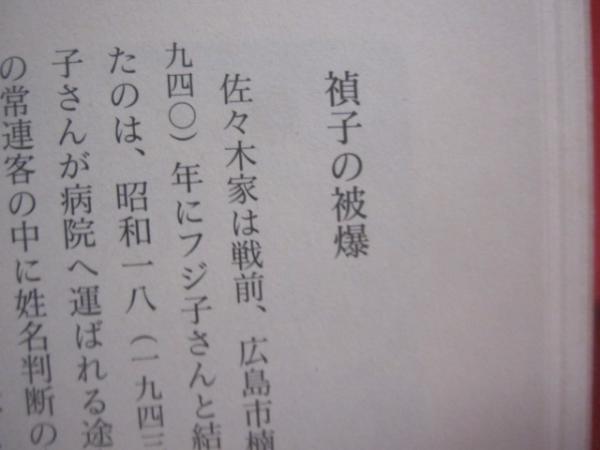 禎子の被爆
佐々木家は戦前、広島市楠
九四〇）年にフジ子さんと結
たのは、昭和一八（一九四三
子さんが病院へ運ばれる途
の常連客の中に姓名判断の